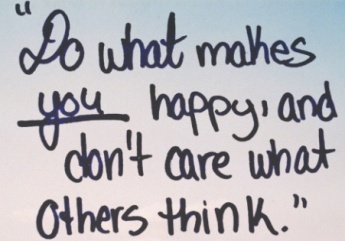 "Do what makes
you happy, and
don't care what
others think."